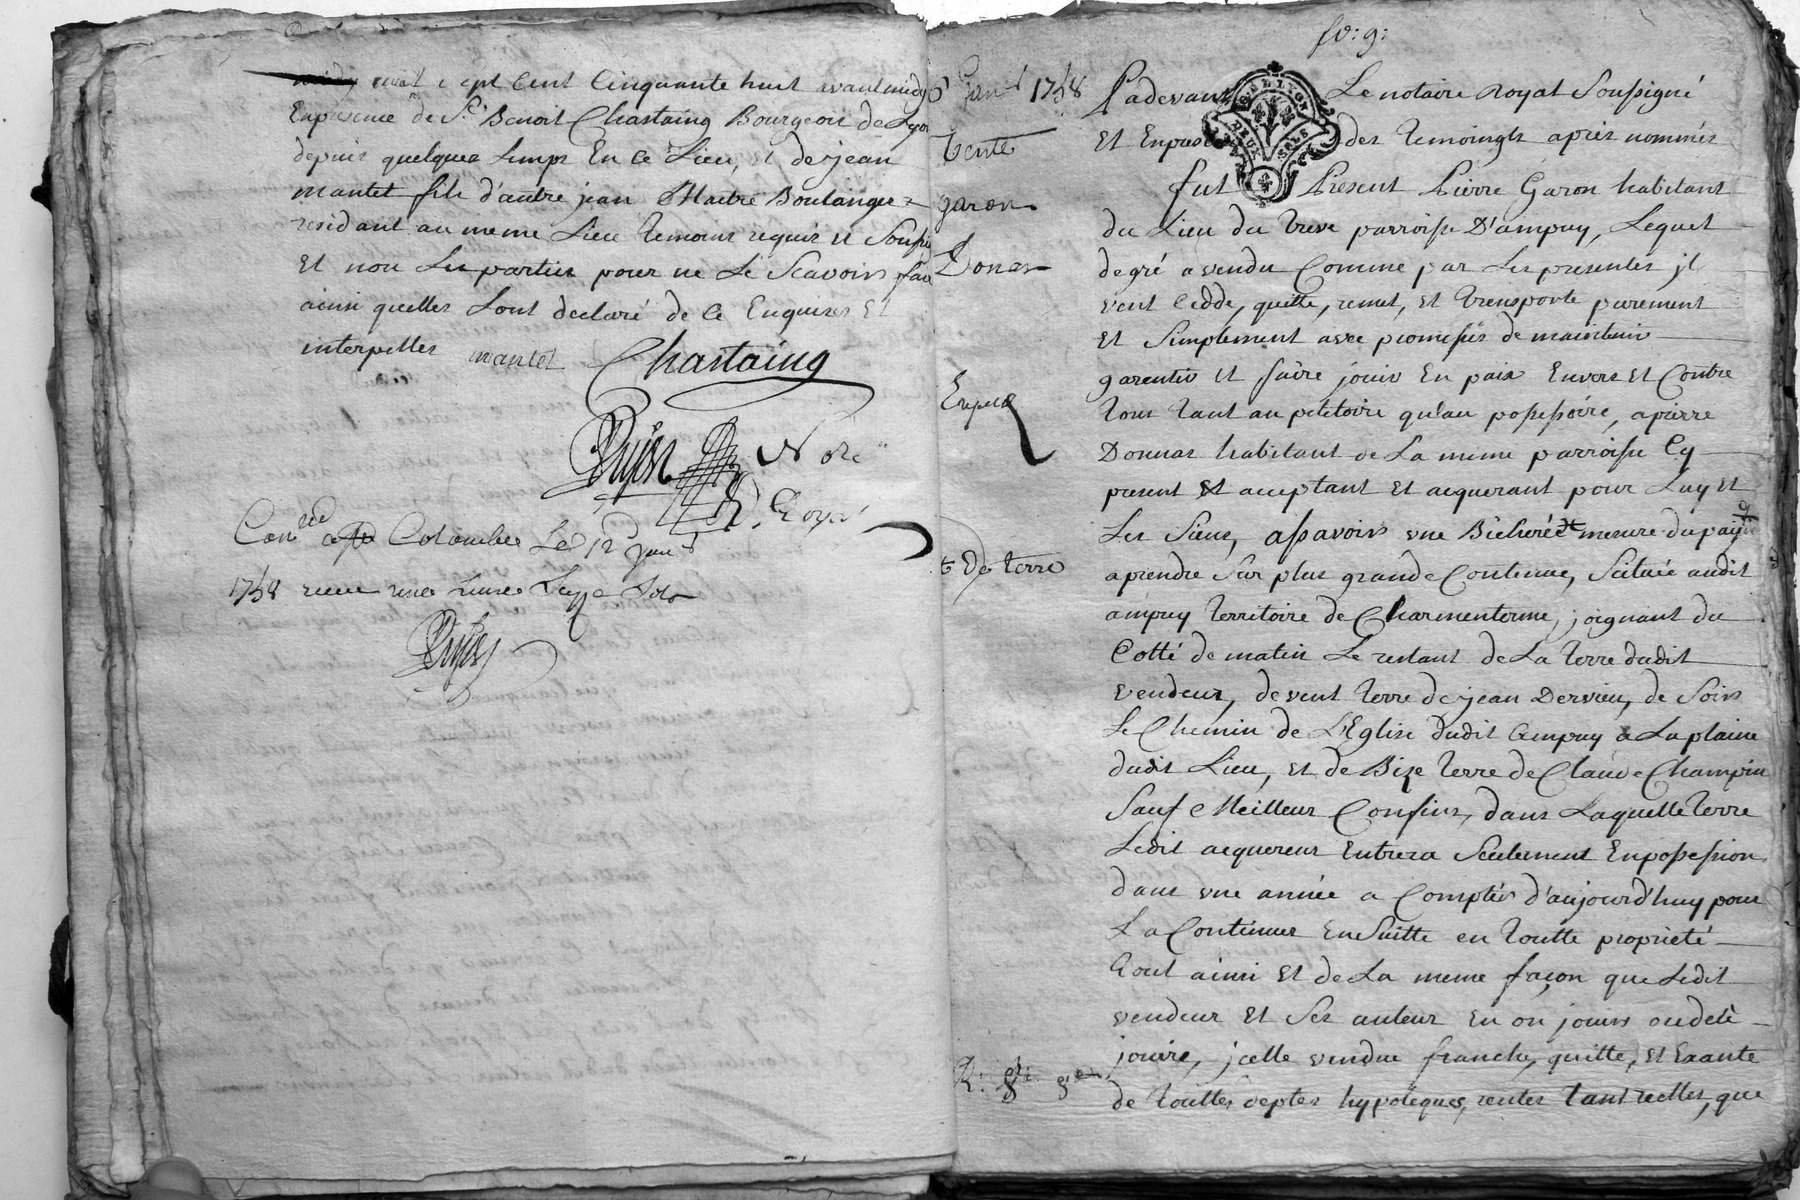 mil sept Cent Cinquante huit avant midy
En presence de Sr Benoit Chastaing Bourgeois de Lyon
depuis quelques temps En ce Lieu, et de jean
mantet fils d'autre jean Maitre Boulanger
residant au meme Lieu temoins requis et Soussig
Et non Les parties pour ne Le Scavoirs faire
ainsi quelles Sont declaré de ce Enquises Et
interpellés mantet Chastaing
Dujon Nore
Royal
Conlle a Ste Colombe Le 12 janr
1758 receu une Livre Sols
Dujon
fo: 9:
janr 1758
Vente
garon
Donas
Exped
De terre
Pardevant Le notaire Royal Soussigné
DEUX SOLS
Et En presence des temoingts apres nommés
fut Present Pierre Garon habitant
du Lieu du Treve parroisse D'ampuy, Lequel
de gré a vendu Comme par Les presentes jl
vent Cedde, quitte, remet, et transporte purement
et Simplement avec promesses de maintenir
garentir et faire jouir En paix Envers et Contre
tous tant au petitoire qu'au possessoire, a pierre
Donnas habitant de La meme parroisse Cy
present et acceptant et acquerant pour Luy et
Les Siens, assavoirs une Bicherée mesure du païs
a prendre Sur plus grande Contenue, Scituée audit
ampuy territoire de Charmenterme, joignant du
Cotté de matin Le restant de La terre dudit
vendeur, de vent terre de jean Dervieu, de Soirs
Le Chemin de L'Eglise dudit ampuy a La plaine
dudit Lieu, et de Bize terre de Claude Champin
Sauf Meilleur Confins, dans Laquelle terre
Ledit acquereur Entrera Seulement En possession
dans une année a Compter d'aujourd'huy pour
La Continuer En Suitte en toutte proprieté
tout ainsi et de La meme façon que Ledit
vendeur et Ses auteur En on jouirs ou deü
jouire, jcelle vendue franche, quitte, et Exante
de touttes deptes hypoteques, rentes tant reelles, que